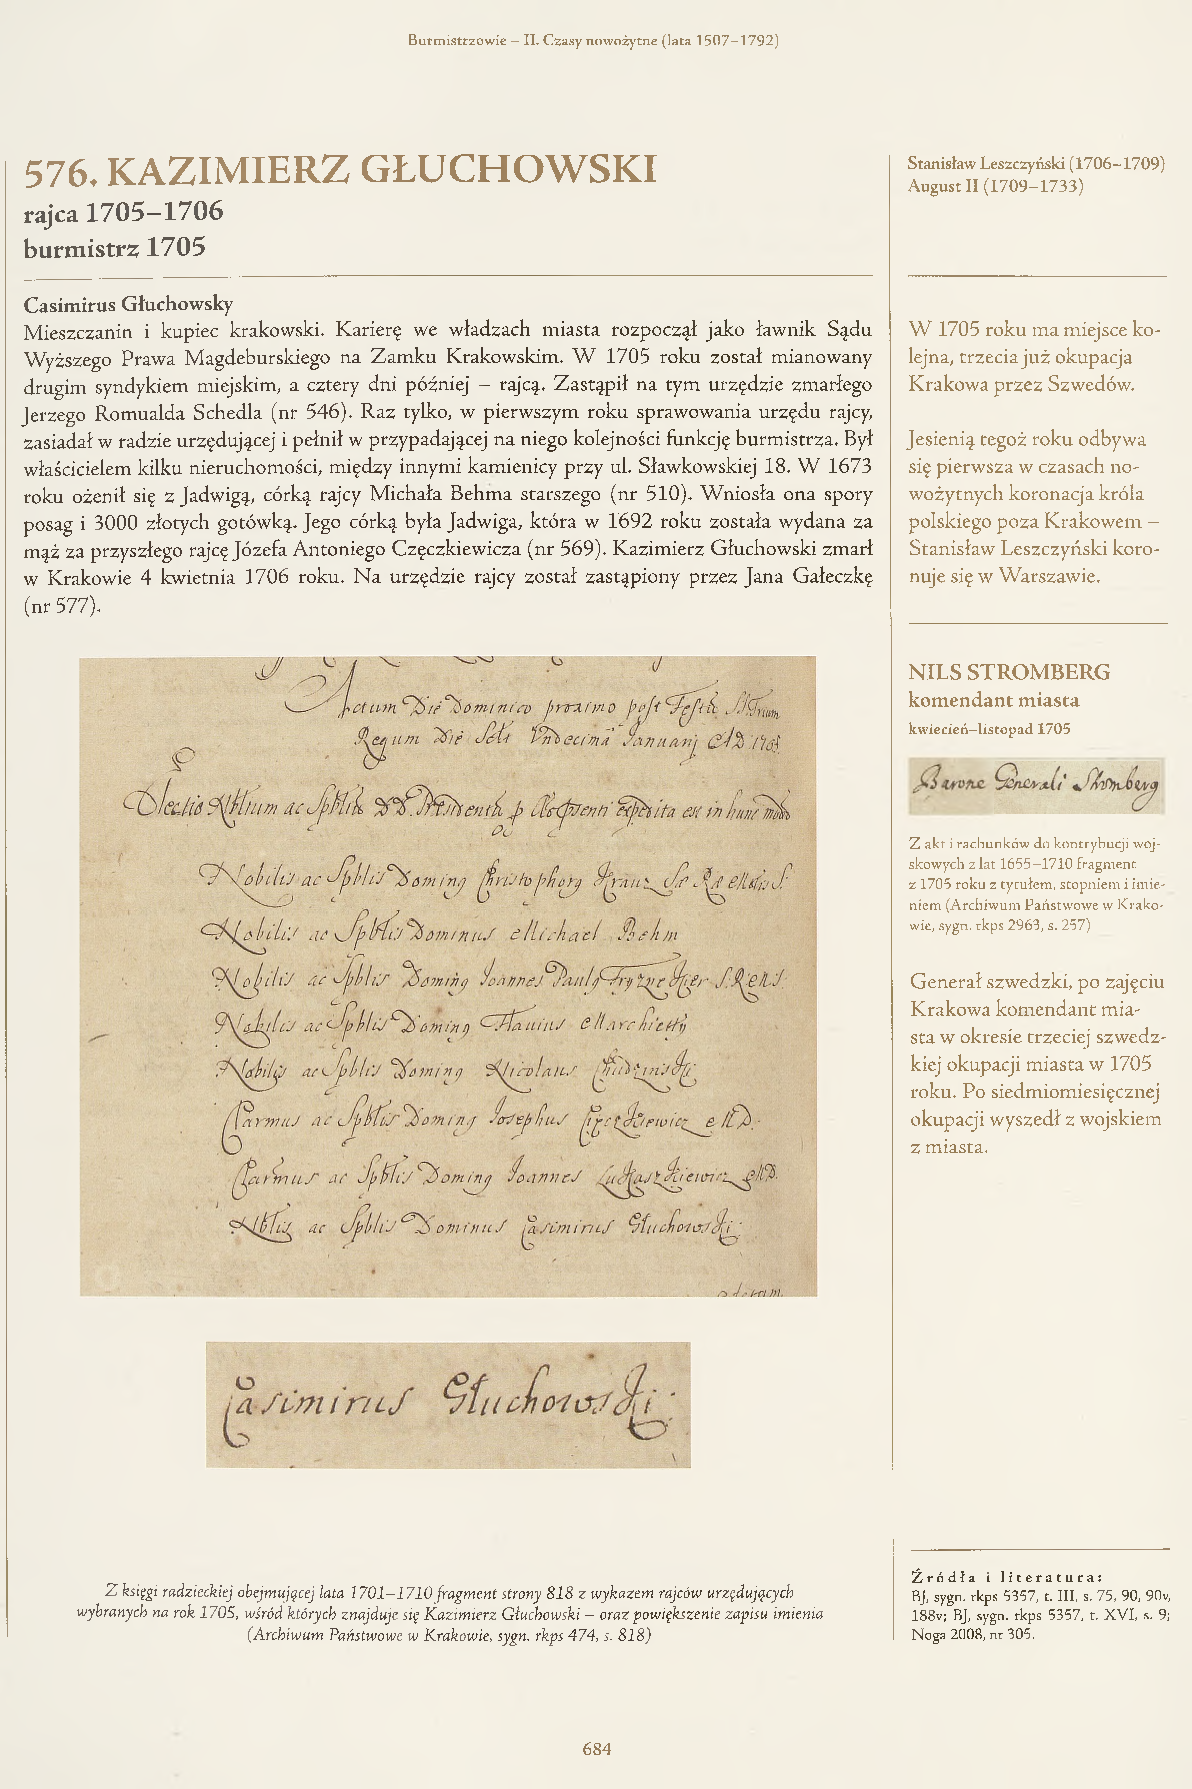 Burmistrzowie – II. Czasy nowożytne (lata 1507–1792)
576. KAZIMIERZ GŁUCHOWSKI
rajca 1705–1706
burmistrz 1705
Casimirus Głuchowsky
Mieszczanin i kupiec krakowski. Karierę we władzach miasta rozpoczął jako ławnik Sądu
Wyższego Prawa Magdeburskiego na Zamku Krakowskim. W 1705 roku został mianowany
drugim syndykiem miejskim, a cztery dni później – rajcą. Zastąpił na tym urzędzie zmarłego
Jerzego Romualda Schedla (nr 546). Raz tylko, w pierwszym roku sprawowania urzędu rajcy,
zasiadał w radzie urzędującej i pełnił w przypadającej na niego kolejności funkcję burmistrza. Był
właścicielem kilku nieruchomości, między innymi kamienicy przy ul. Sławkowskiej 18. W 1673
roku ożenił się z Jadwigą, córką rajcy Michała Behma starszego (nr 510). Wniosła ona spory
posag i 3000 złotych gotówką. Jego córką była Jadwiga, która w 1692 roku została wydana za
mąż za przyszłego rajcę Józefa Antoniego Częczkiewicza (nr 569). Kazimierz Głuchowski zmarł
w Krakowie 4 kwietnia 1706 roku. Na urzędzie rajcy został zastąpiony przez Jana Gałeczkę
(nr 577).
Actum Die Dominico proximo post Festu
Regum Die Undecima Januarij 1705
Electio ac in hunc
Nobilis ac Spblis Doming Christophorg
Nobilis ac Spblis Dominus Michael Behm
Nobilis ac Spblis Doming Joannes Paulg
Nobilis ac Spblis Doming Flavius
Nobilis ac Spblis Doming Nicolaus
ac Spblis Doming Josephus
ac Spblis Doming Joannes
ac Spblis Dominus Casimirus Głuchowski
Casimirus Głuchowski
Z księgi radzieckiej obejmującej lata 1701–1710 fragment strony 818 z wykazem rajców urzędujących
wybranych na rok 1705, wśród których znajduje się Kazimierz Głuchowski – oraz powiększenie zapisu imienia
(Archiwum Państwowe w Krakowie, sygn. rkps 474, s. 818)
Stanisław Leszczyński (1706–1709)
August II (1709–1733)
W 1705 roku ma miejsce ko-
lejna, trzecia już okupacja
Krakowa przez Szwedów.
Jesienią tegoż roku odbywa
się pierwsza w czasach no-
wożytnych koronacja króla
polskiego poza Krakowem –
Stanisław Leszczyński koro-
nuje się w Warszawie.
NILS STROMBERG
komendant miasta
kwiecień–listopad 1705
Barone Generali Stromberg
Z akt i rachunków do kontrybucji woj-
skowych z lat 1655–1710 fragment
z 1705 roku z tytułem, stopniem i imie-
niem (Archiwum Państwowe w Krako-
wie, sygn. rkps 2963, s. 257)
Generał szwedzki, po zajęciu
Krakowa komendant mia-
sta w okresie trzeciej szwedz-
kiej okupacji miasta w 1705
roku. Po siedmiomiesięcznej
okupacji wyszedł z wojskiem
z miasta.
Źródła i literatura:
BJ, sygn. rkps 5357, t. III, s. 75, 90, 90v,
188v; BJ, sygn. rkps 5357, t. XVI, s. 9;
Noga 2008, nr 305.
684